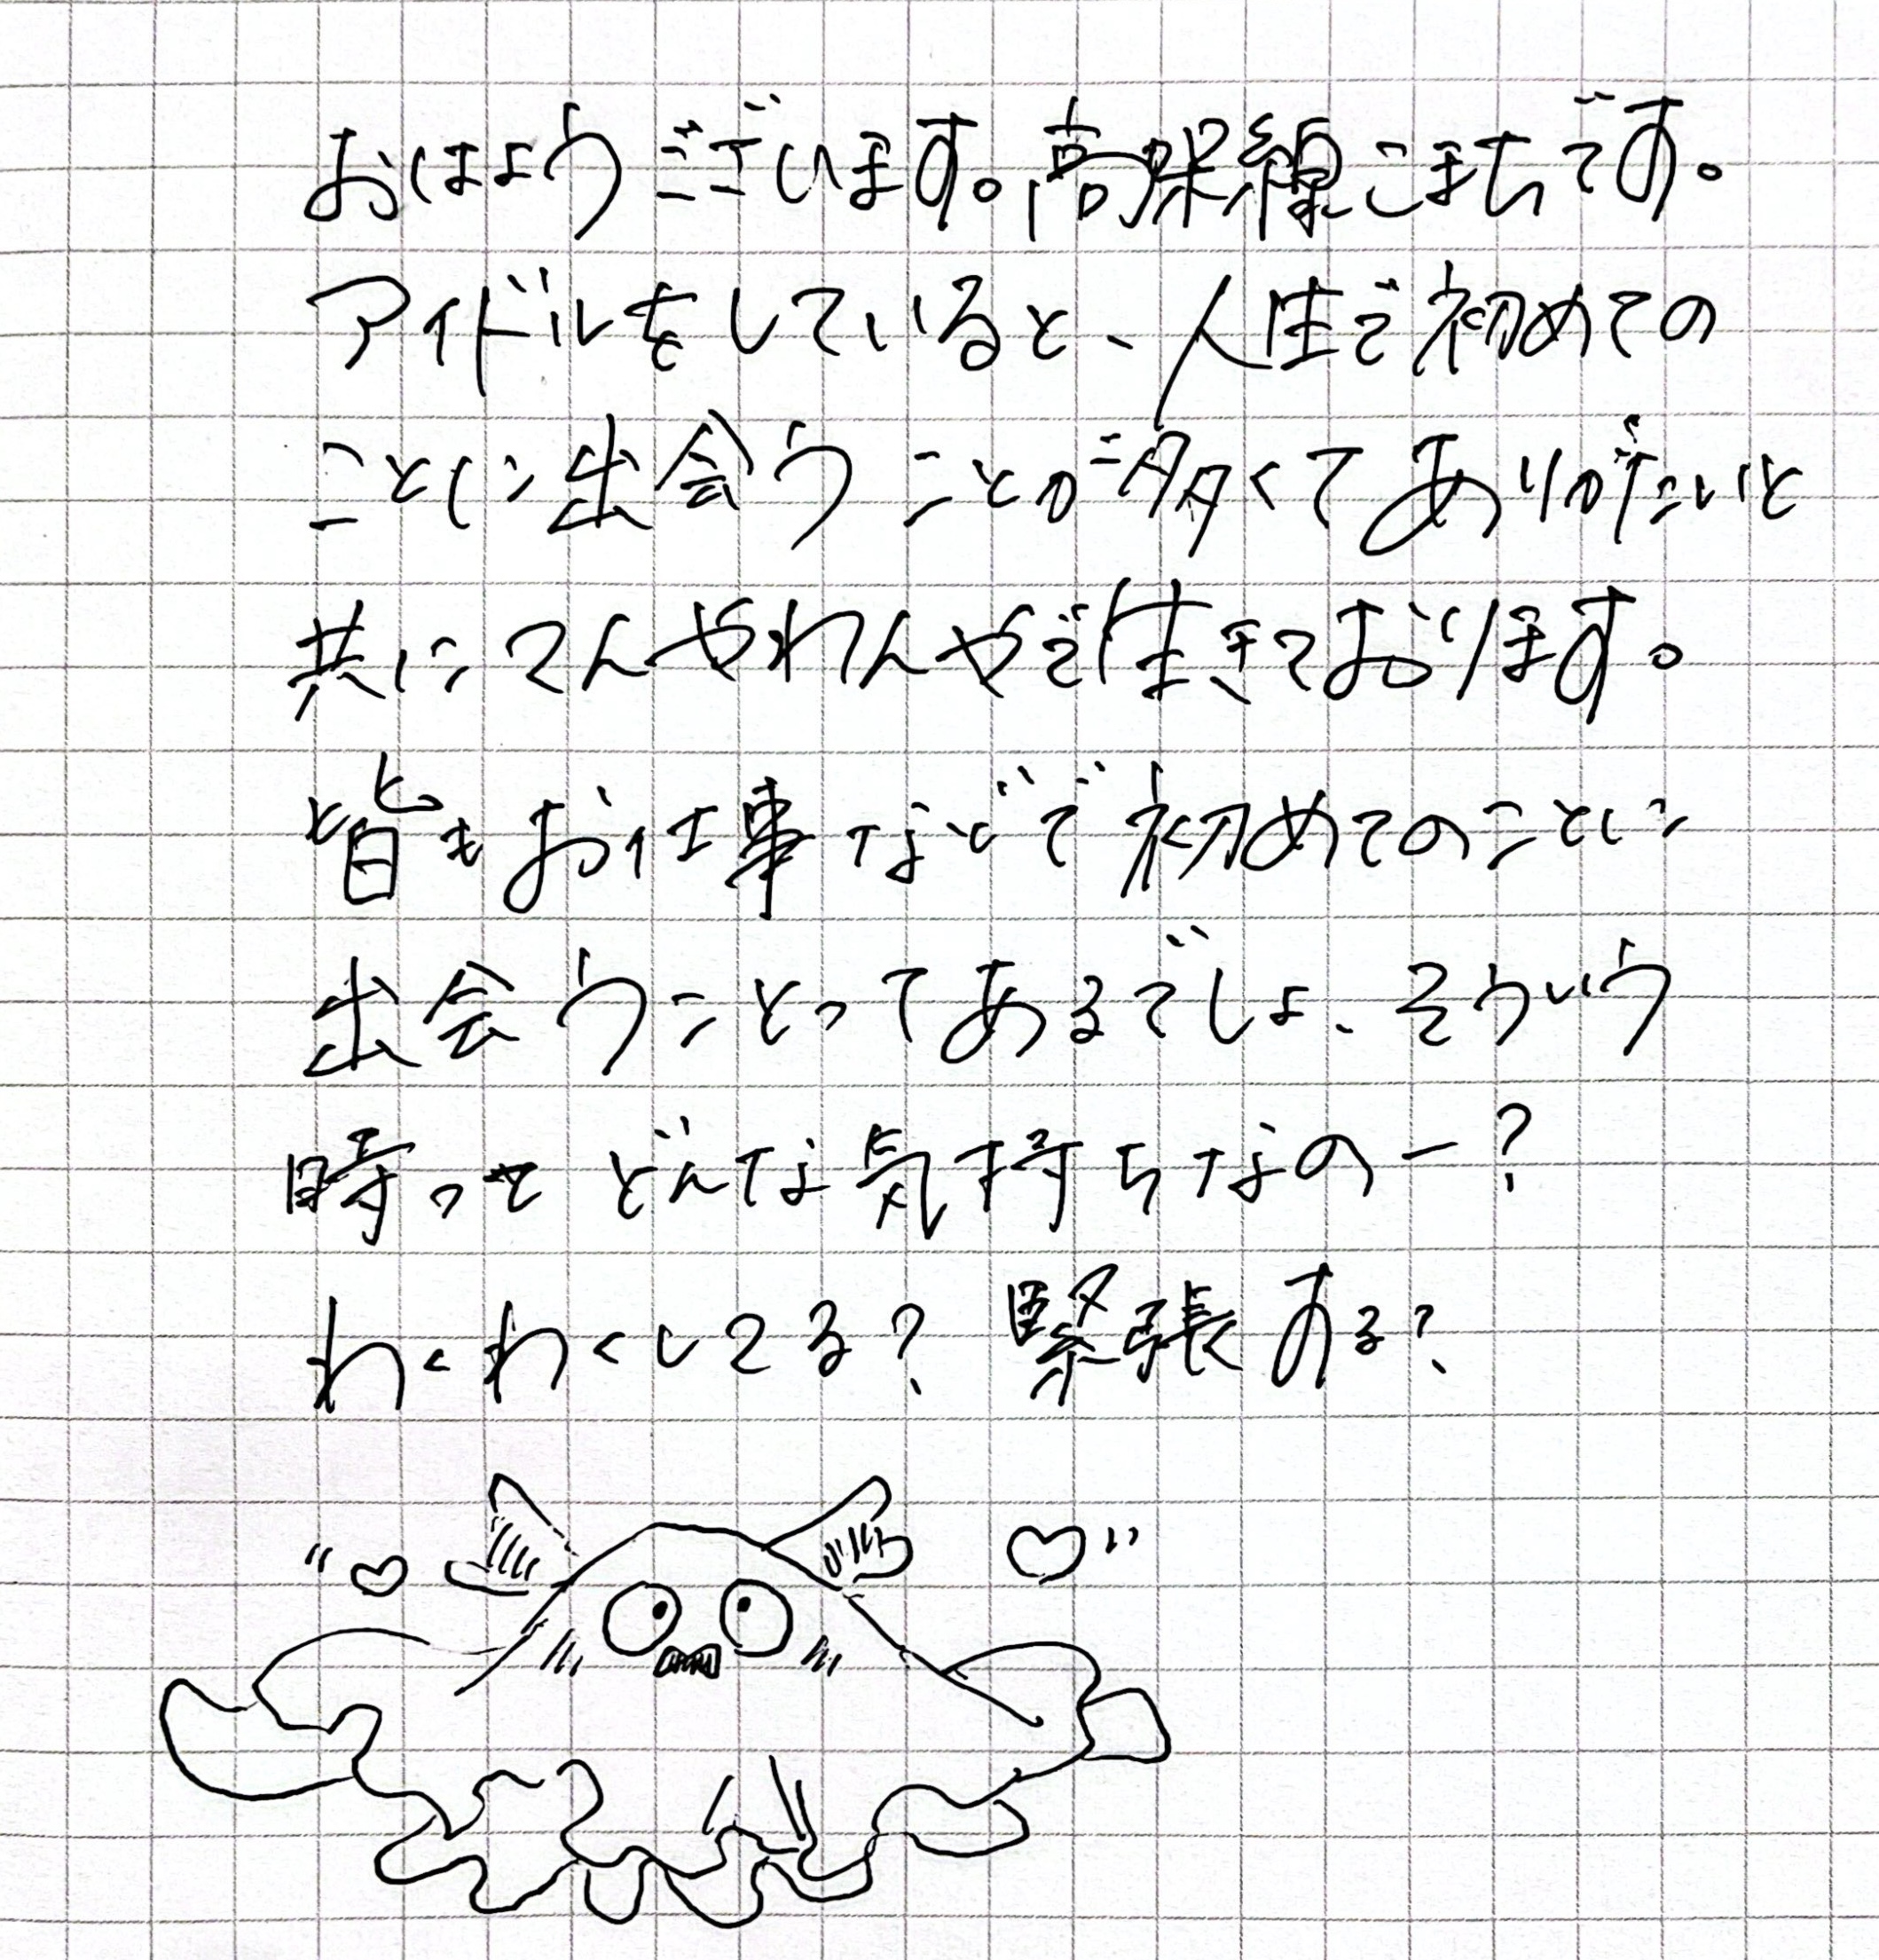 おはようございます。高嶺線こまちです。
アイドルをしていると、人生で初めての
ことに出会うことが多くてありがたいと
共にてんやわんやで生きております。
皆もお仕事などで初めてのことに
出会うことってあるでしょ、そういう
時ってどんな気持ちなのー?
わくわくしてる? 緊張する?